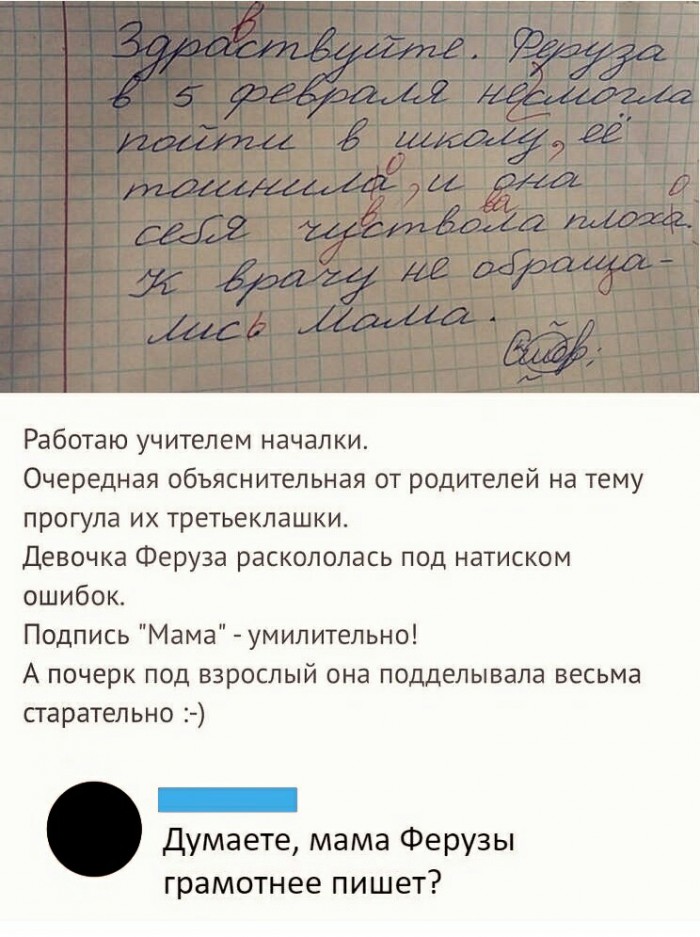 Здраствуйте. Феруза
в 5 февраля несмогла
пойти в школу, её
тошнила, и она
себя чуствола плоха.
К врачу не обраща-
лись Мама.
Работаю учителем началки.
Очередная объяснительная от родителей на тему
прогула их третьеклашки.
Девочка Феруза раскололась под натиском
ошибок.
Подпись "Мама" - умилительно!
А почерк под взрослый она подделывала весьма
старательно :-)
Думаете, мама Ферузы
грамотнее пишет?